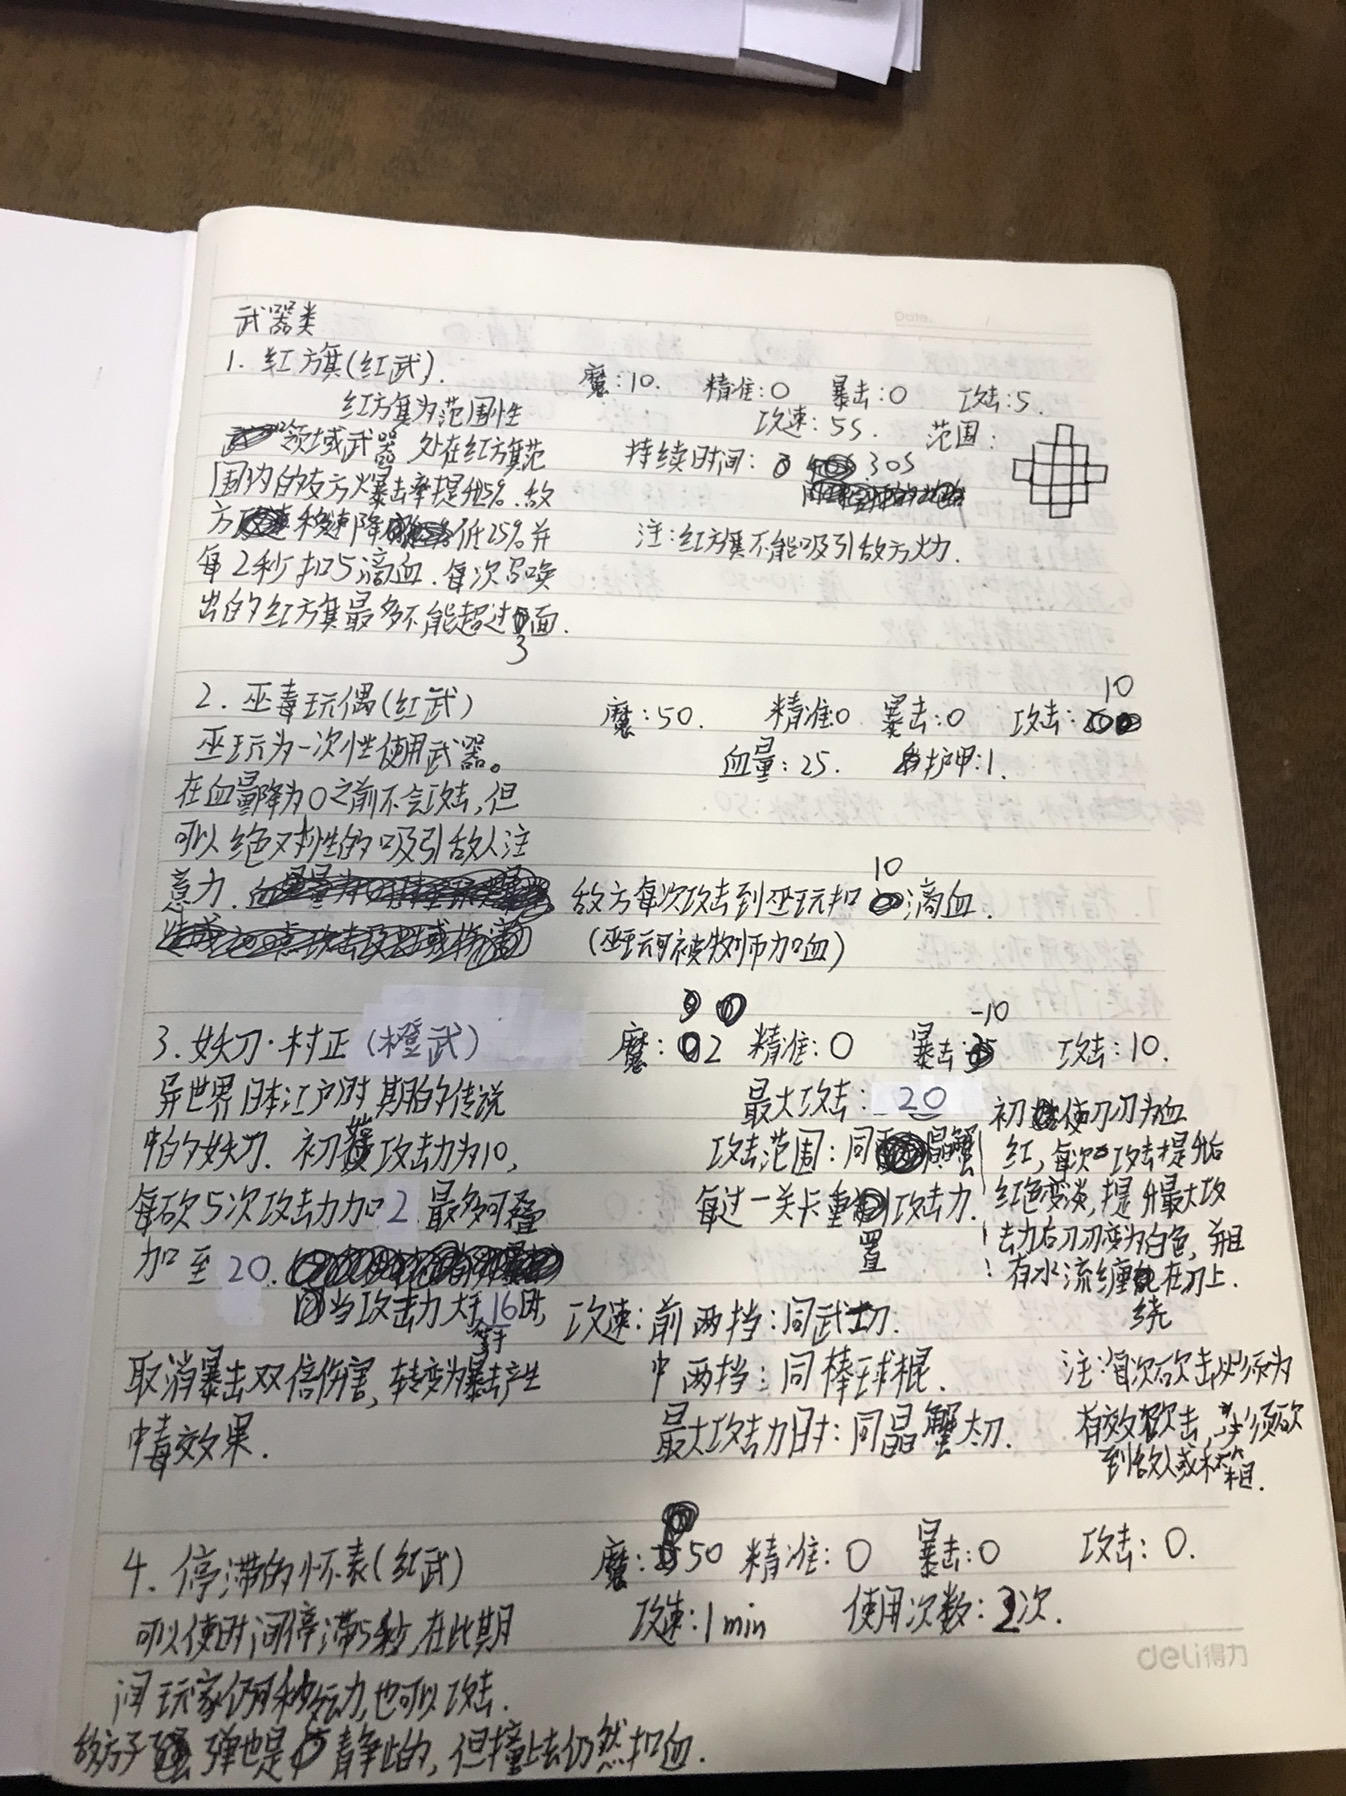 武器类
1. 红方旗(红武). 魔:10. 精准:0 暴击:0 攻击:5.
红方旗为范围性 攻速:5S. 范围:
领域武器 处在红方旗范 持续时间: 30S
围内的友方暴击率提升5%.敌
方移速降低25%并 注:红方旗不能吸引敌方火力.
每2秒扣5滴血.每次召唤
出的红方旗最多不能超过3面.
2. 巫毒玩偶(红武) 魔:50. 精准:0 暴击:0 攻击:10
巫玩为一次性使用武器。 血量:25. 护甲:1.
在血量降为0之前不会攻击,但
可以绝对性的吸引敌人注
意力. 敌方每次攻击到巫玩扣10滴血.
(巫玩可被牧师加血)
3. 妖刀·村正(橙武) 魔:2 精准:0 暴击:-10 攻击:10.
异世界日本江户时期的传说 最大攻击:20
中的妖刀. 初 攻击力为10, 攻击范围:同晶蟹
每砍5次攻击力加2 最多可叠 每过一关卡重置攻击力.
加至20.
当攻击力大于等于16时,
取消暴击双倍伤害,转变为暴击产生
中毒效果.
初使刀刃为血
红,每次攻击提升后
红色变淡,提升最大攻
击力后刀刃变为白色,并且
有水流缠绕在刀上.
攻速:前两挡:同武士刀.
中两挡:同棒球棍.
最大攻击力时:同晶蟹太刀.
注:每次砍击必须为
有效砍击,必须砍
到敌人或木箱.
4. 停滞的怀表(红武) 魔:50 精准:0 暴击:0 攻击:0.
可以使时间停滞5秒,在此期 攻速:1min 使用次数:2次.
间玩家仍有移动力,也可以攻击.
敌方子弹也是静止的,但撞上去仍然扣血.
Date.
deli得力